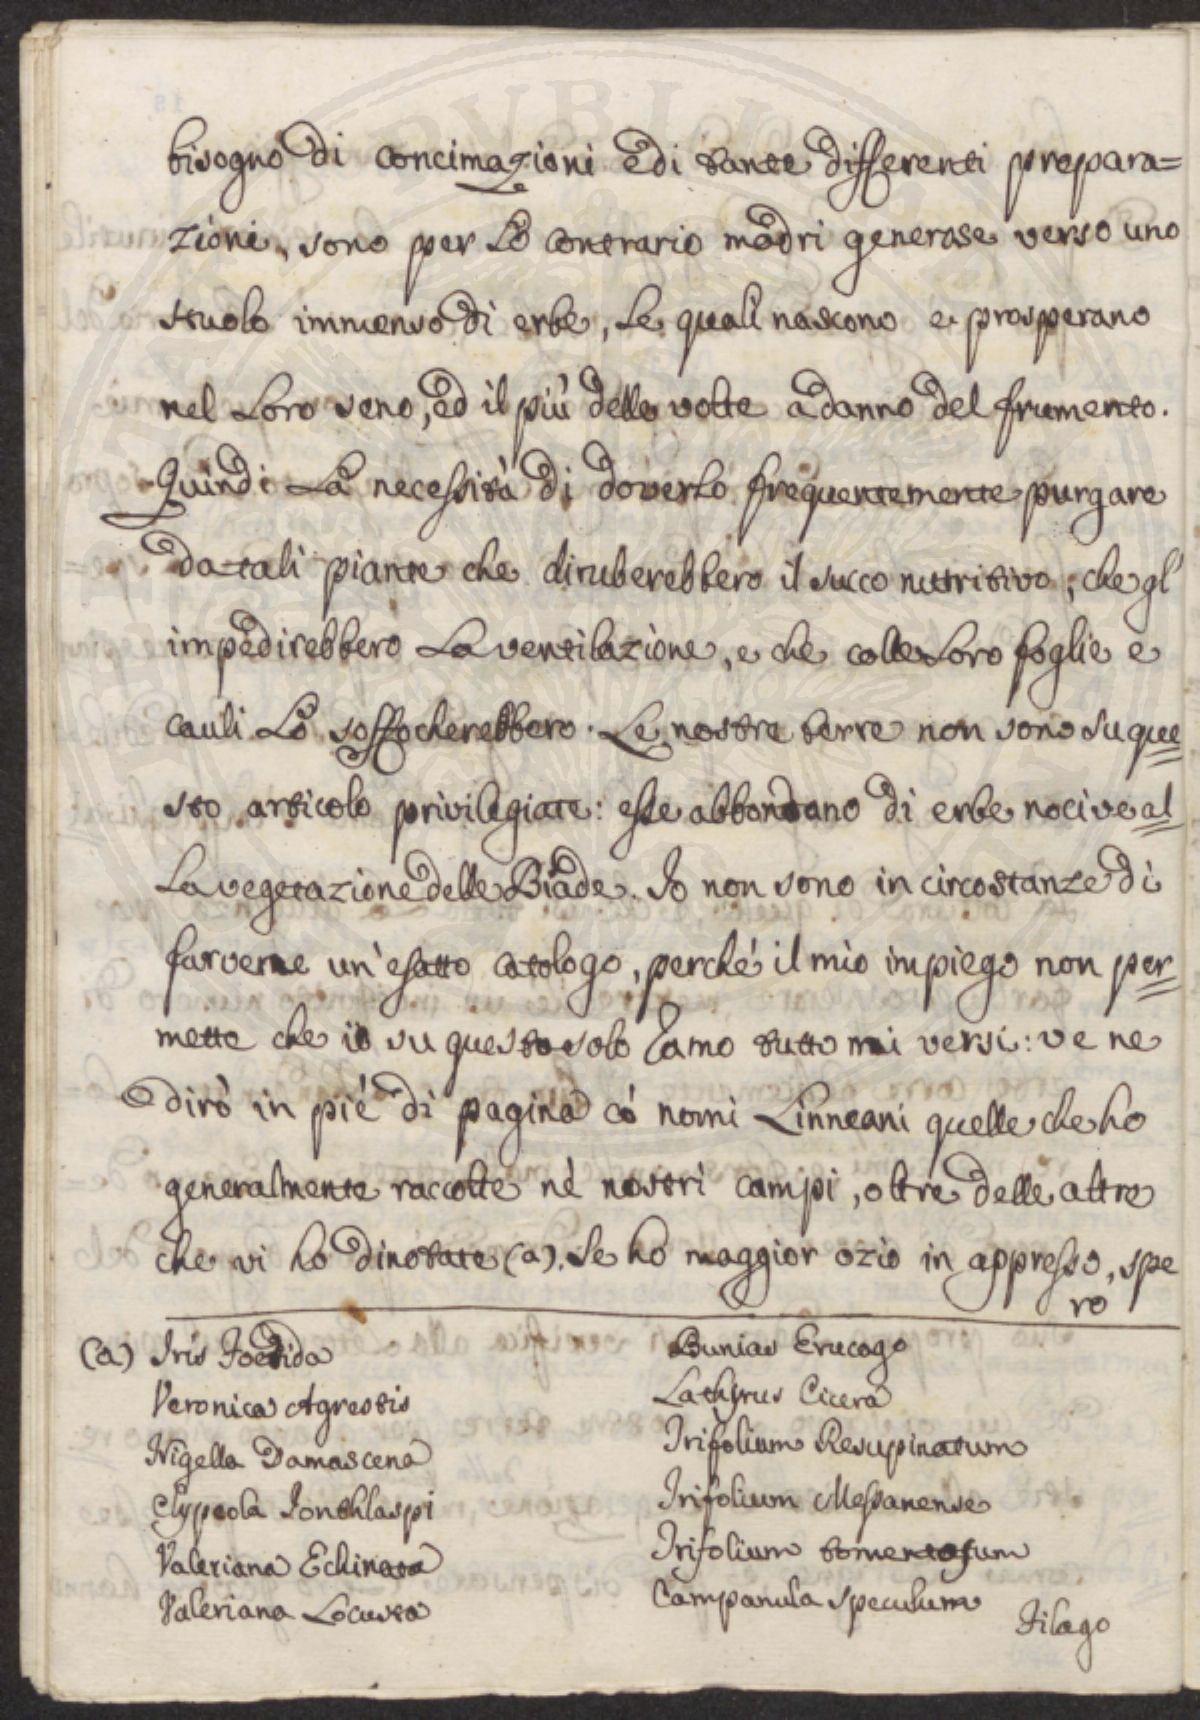 bisogno di concimazioni e di tante differenti prepara=
zioni, sono per lo contrario madri generose verso uno
stuolo immenso di erbe, le quali nascono e prosperano
nel loro seno, ed il più delle volte a danno del frumento.
Quindi la necessità di doverlo frequentemente purgare
da tali piante che diruberebbero il succo nutritivo, che gl'
impedirebbero la ventilazione, e che colle loro foglie e
cauli lo soffocherebbero. Le nostre terre non sono su que=
sto articolo privilegiate: esse abbondano di erbe nocive al=
la vegetazione delle Biade. Io non sono in circostanze di
farvene un'esatto catologo, perché il mio impiego non per=
mette che io su questo solo ramo tutto mi versi: ve ne
dirò in pié di pagina có nomi Linneani quelle che ho
generalmente raccolte né nostri campi, oltre delle altre
che vi ho dinotate (a). Se ho maggior ozio in appresso, spe
ro
(a) Iris Foetida
Veronica Agrestis
Nigella Damascena
Clypeola Jonthlaspi
Valeriana Echinata
Valeriana Locusta
Bunias Erucago
Lathyrus Cicera
Trifolium Resupinatum
Trifolium Messanense
Trifolium tomentosum
Campanula speculum
Filago
PVBLI